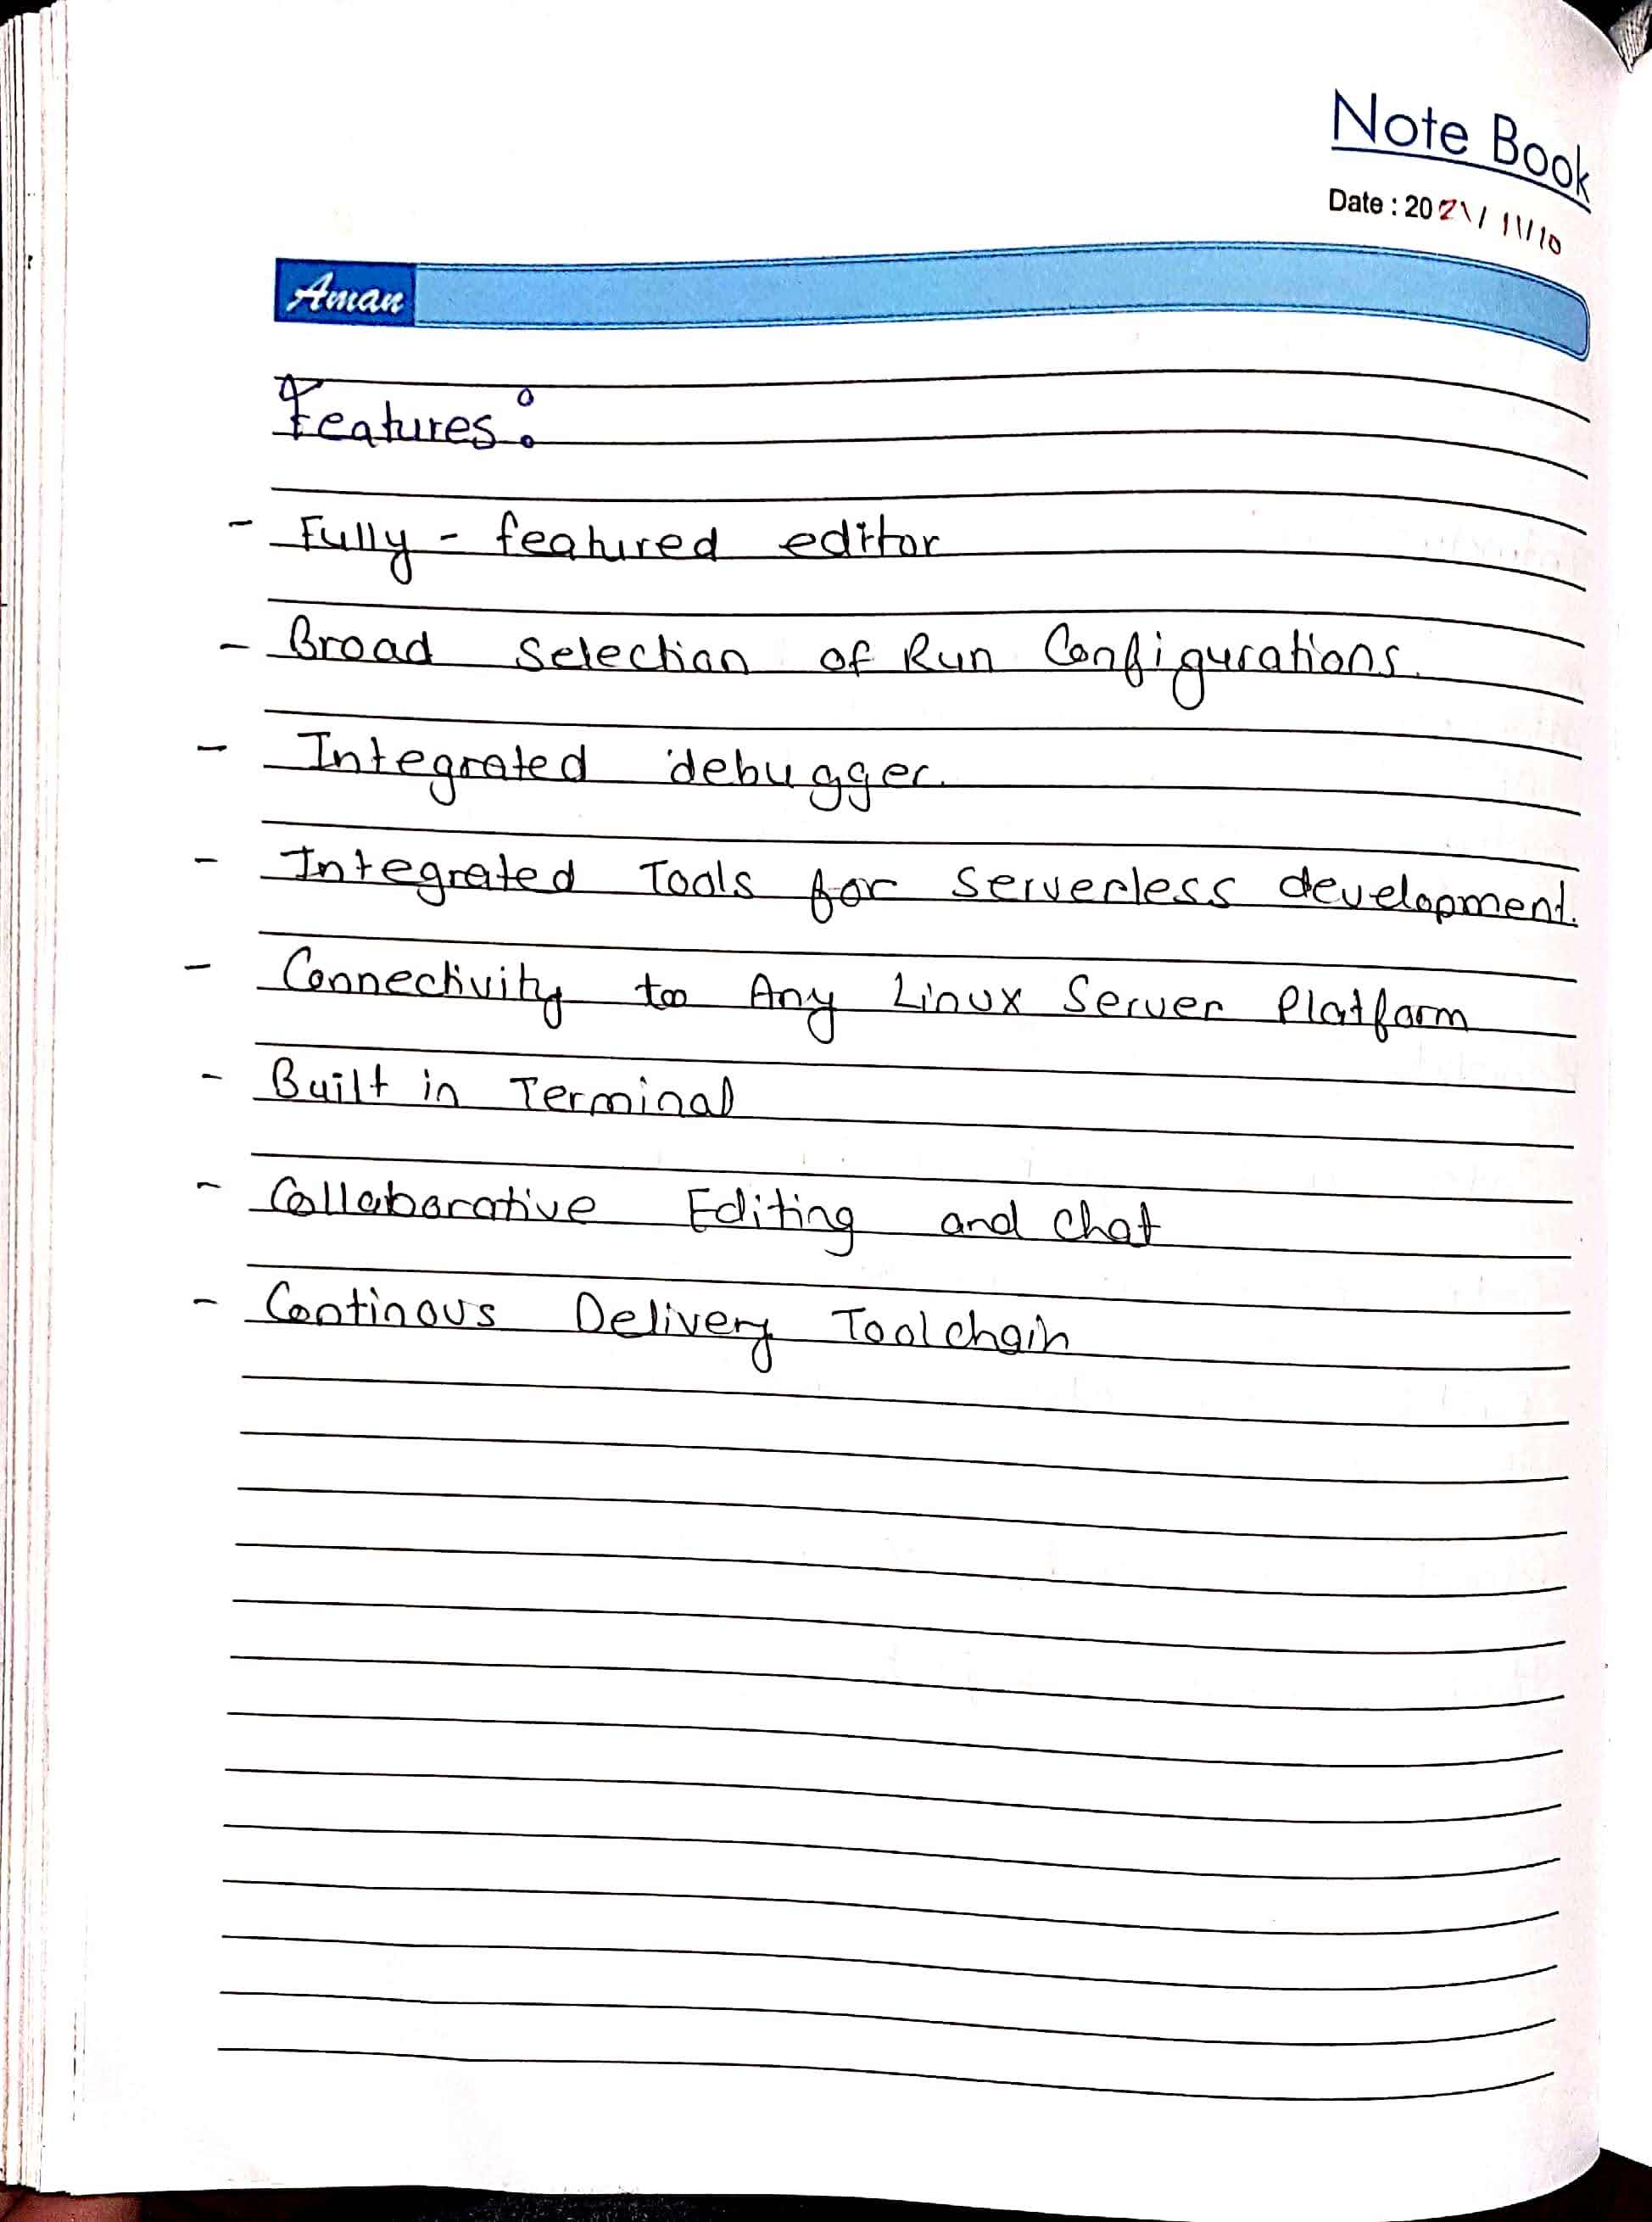 Note Book
Date : 2021/11/10
Aman
Features:
- Fully - featured editor
- Broad Selection of Run Configurations.
- Integrated debugger.
- Integrated Tools for Serverless development.
- Connectivity to Any Linux Server Platform
- Built in Terminal
- Collaborative Editing and chat
- Continous Delivery Toolchain